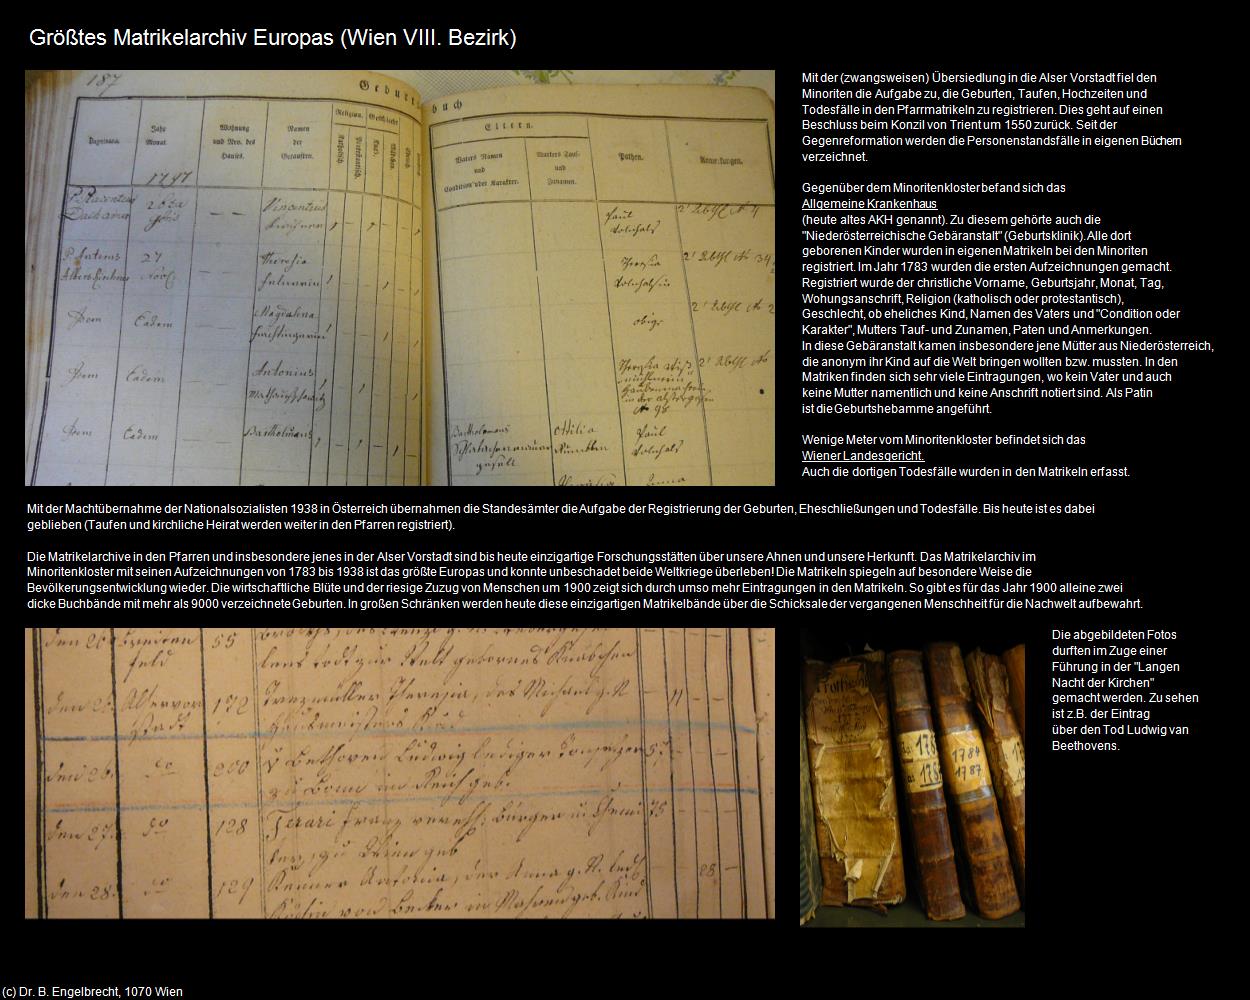 Größtes Matrikelarchiv Europas (Wien VIII. Bezirk)
187
Geburts
buch
Jahr
Monat.
Wohnung
und Nro. des
Hauses.
Namen
der
Getauften.
Religion.
Geschlecht
Katholisch
Protestantisch.
Eltern.
Vaters Namen
und
Condition oder Karakter.
Mutters Tauf-
und
Zunamen.
Pathen.
Anmerkungen.
1797
Vincentius
Theresia
Magdalena
Idem Eadem
Antonius
Idem Eadem Bartholmäus
Paul
obige
Mit der (zwangsweisen) Übersiedlung in die Alser Vorstadt fiel den
Minoriten die Aufgabe zu, die Geburten, Taufen, Hochzeiten und
Todesfälle in den Pfarrmatrikeln zu registrieren. Dies geht auf einen
Beschluss beim Konzil von Trient um 1550 zurück. Seit der
Gegenreformation werden die Personenstandsfälle in eigenen Büchern
verzeichnet.
Gegenüber dem Minoritenkloster befand sich das
Allgemeine Krankenhaus
(heute altes AKH genannt). Zu diesem gehörte auch die
"Niederösterreichische Gebäranstalt" (Geburtsklinik). Alle dort
geborenen Kinder wurden in eigenen Matrikeln bei den Minoriten
registriert. Im Jahr 1783 wurden die ersten Aufzeichnungen gemacht.
Registriert wurde der christliche Vorname, Geburtsjahr, Monat, Tag,
Wohungsanschrift, Religion (katholisch oder protestantisch),
Geschlecht, ob eheliches Kind, Namen des Vaters und "Condition oder
Karakter", Mutters Tauf- und Zunamen, Paten und Anmerkungen.
In diese Gebäranstalt kamen insbesondere jene Mütter aus Niederösterreich,
die anonym ihr Kind auf die Welt bringen wollten bzw. mussten. In den
Matriken finden sich sehr viele Eintragungen, wo kein Vater und auch
keine Mutter namentlich und keine Anschrift notiert sind. Als Patin
ist die Geburtshebamme angeführt.
Wenige Meter vom Minoritenkloster befindet sich das
Wiener Landesgericht.
Auch die dortigen Todesfälle wurden in den Matrikeln erfasst.
Mit der Machtübernahme der Nationalsozialisten 1938 in Österreich übernahmen die Standesämter die Aufgabe der Registrierung der Geburten, Eheschließungen und Todesfälle. Bis heute ist es dabei
geblieben (Taufen und kirchliche Heirat werden weiter in den Pfarren registriert).
Die Matrikelarchive in den Pfarren und insbesondere jenes in der Alser Vorstadt sind bis heute einzigartige Forschungsstätten über unsere Ahnen und unsere Herkunft. Das Matrikelarchiv im
Minoritenkloster mit seinen Aufzeichnungen von 1783 bis 1938 ist das größte Europas und konnte unbeschadet beide Weltkriege überleben! Die Matrikeln spiegeln auf besondere Weise die
Bevölkerungsentwicklung wieder. Die wirtschaftliche Blüte und der riesige Zuzug von Menschen um 1900 zeigt sich durch umso mehr Eintragungen in den Matrikeln. So gibt es für das Jahr 1900 alleine zwei
dicke Buchbände mit mehr als 9000 verzeichnete Geburten. In großen Schränken werden heute diese einzigartigen Matrikelbände über die Schicksale der vergangenen Menschheit für die Nachwelt aufbewahrt.
55
172
den 26. do 200 v Beethoven Ludwig lediger
zu Bonn im Reich geb.
den 27. do 128
den 28. do 129
1784
1787
Die abgebildeten Fotos
durften im Zuge einer
Führung in der "Langen
Nacht der Kirchen"
gemacht werden. Zu sehen
ist z.B. der Eintrag
über den Tod Ludwig van
Beethovens.
(c) Dr. B. Engelbrecht, 1070 Wien